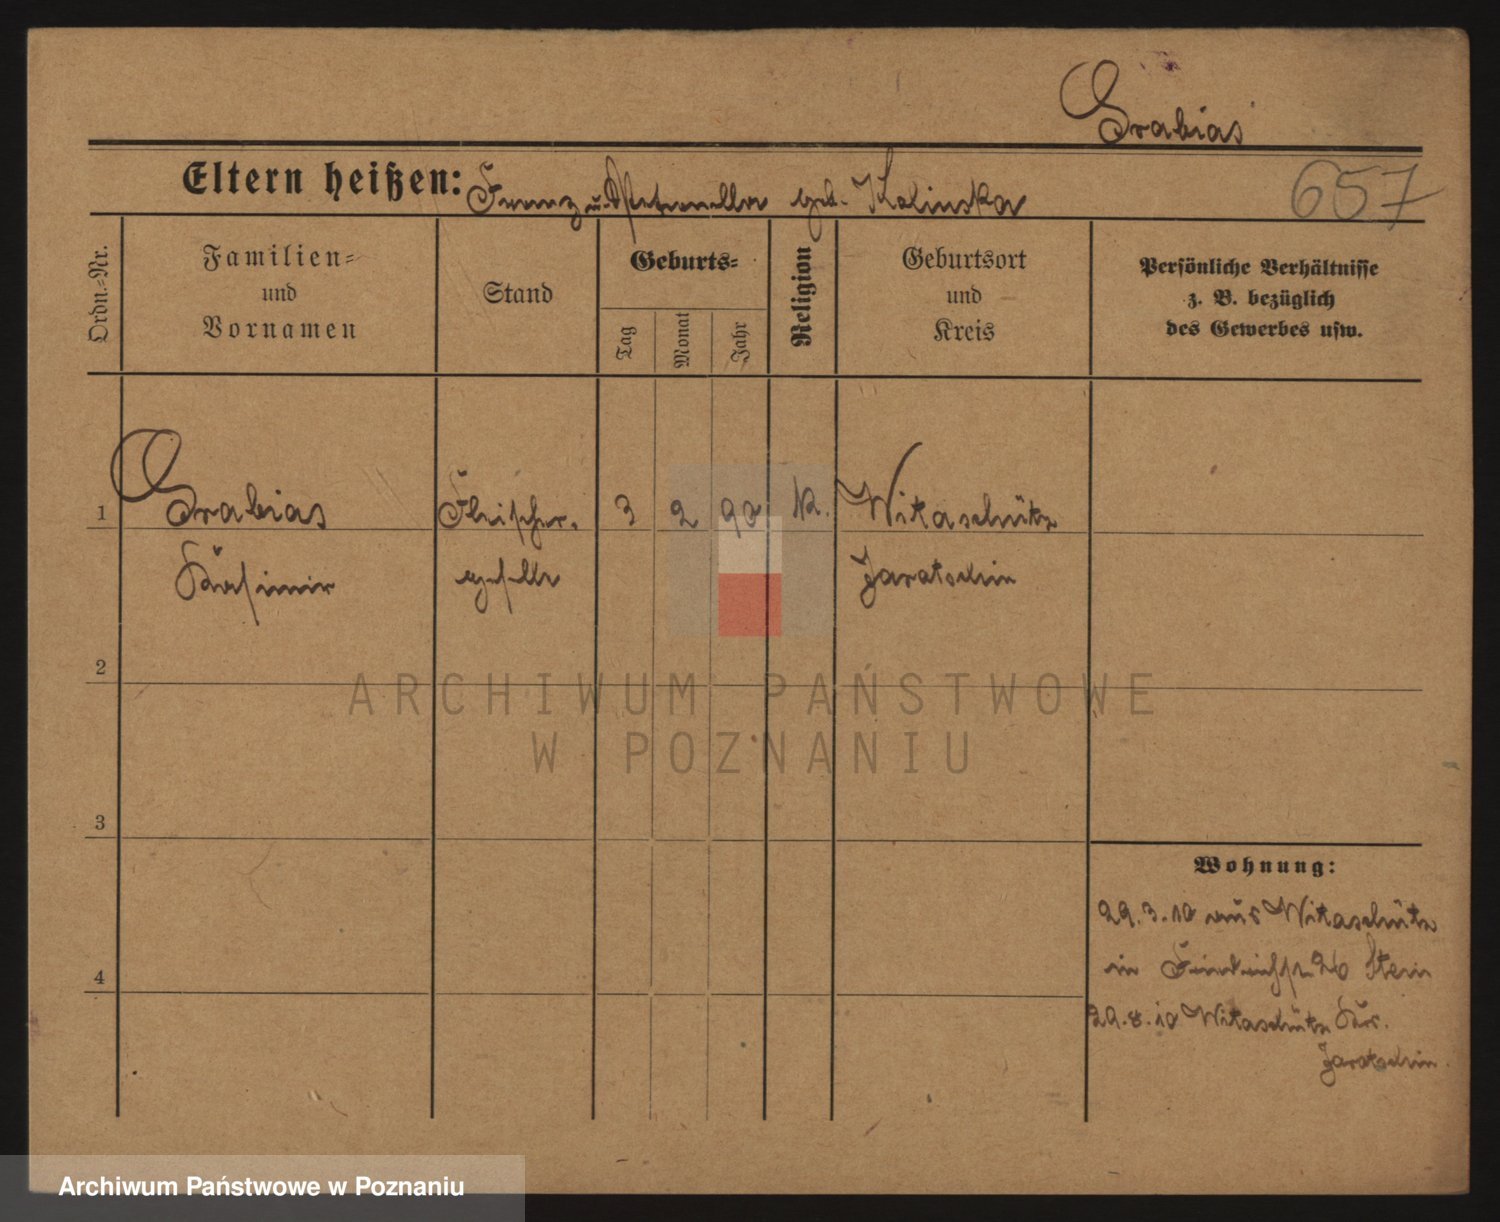 Grabias
Eltern heißen: Franz u. Petronella geb. Kolinska
657
Ordn.-Nr.
Familien-
und
Vornamen
Stand
Geburts-
Tag
Monat
Jahr
Religion
Geburtsort
und
Kreis
Persönliche Verhältnisse
z. B. bezüglich
des Gewerbes usw.
1 Grabias Fleischer- 3 2 90 K. Witaschütz
Kasimir geselle Jarotschin
2
ARCHIWUM PAŃSTWOWE
W POZNANIU
3
Wohnung:
29.3.10 aus Witaschütz
in Friedrichstr 26 Stein
4
29.8.10 Witaschütz Krs.
Jarotschin.
Archiwum Państwowe w Poznaniu